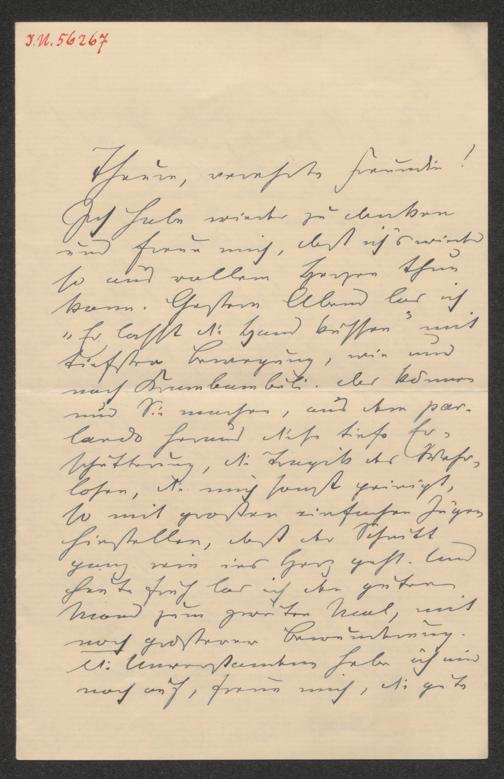 J.N. 56267
Theure, verehrte Freundin!
Ich habe wieder zu danken
und freue mich, daß ich's wieder
so aus vollem Herzen thun
kann. Gestern Abend las ich
"Er laßt die Hand küssen" mit
tiefster Bewegung, wie und
nach Krambambuli. das können
nur Sie machen, aus dem par-
lando heraus diese tiefe Er-
schütterung, die Tragik des
losen, die mich sonst peinigt,
so mit großen einfachen Zügen
hinstellen, daß der Schnitt
ganz ins Herz geht. Und
heute früh las ich den guten
Mond zum zweiten Mal, mit
noch größerer Bewunderung.
Die Unverstandene habe ich mir
noch auf, freue mich, die gute